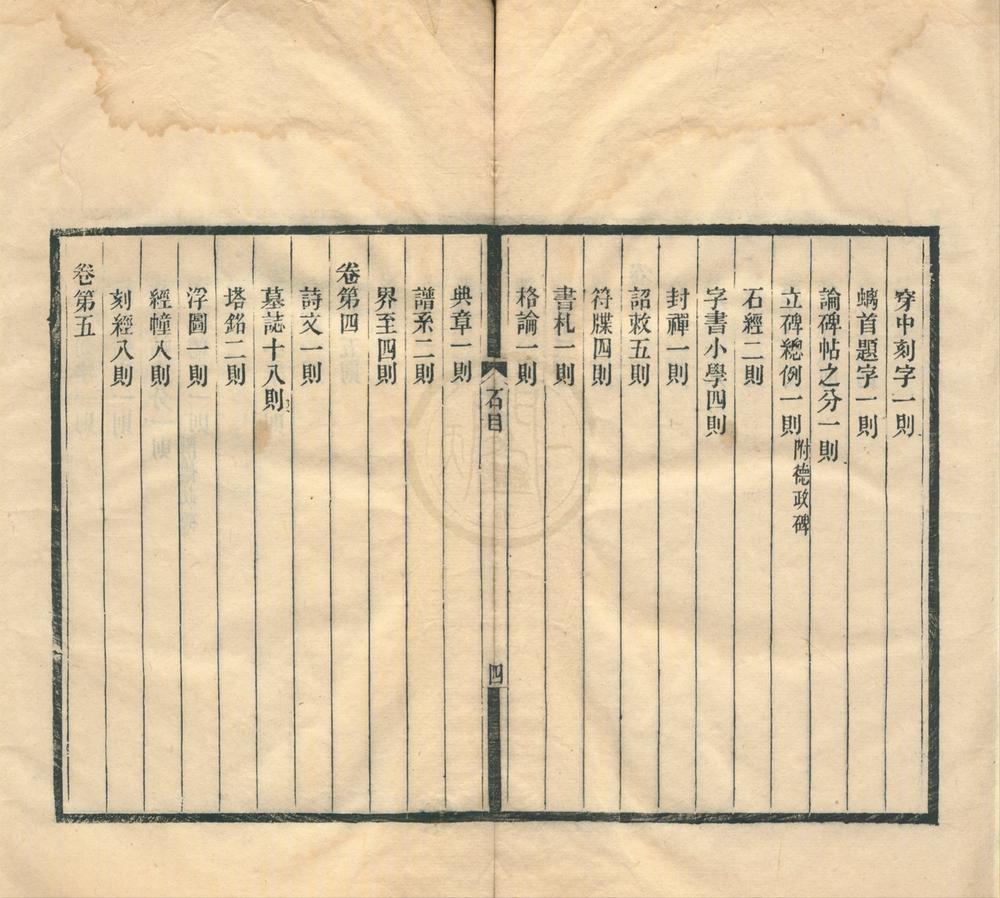 穿中刻字一則
螭首題字一則
論碑帖之分一則
立碑總例一則附德政碑
石經二則
字書小學四則
封禪一則
詔敕五則
符牒四則
書札一則
格論一則
石目
四
典章一則
譜系二則
界至四則
卷第四
詩文一則
墓誌十八則
塔銘二則
浮圖一則
經幢八則
刻經八則
卷第五